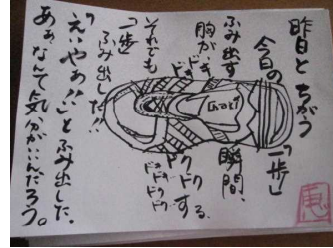 昨日とちがう
今日の「一歩」
ふみ出す瞬間、
胸がドキドキ
ドクドクする。
それでも
一歩
ふみ出した!!
「えいやぁ!!」とふみ出した。
あぁなんて気分がいいんだろう。
恵